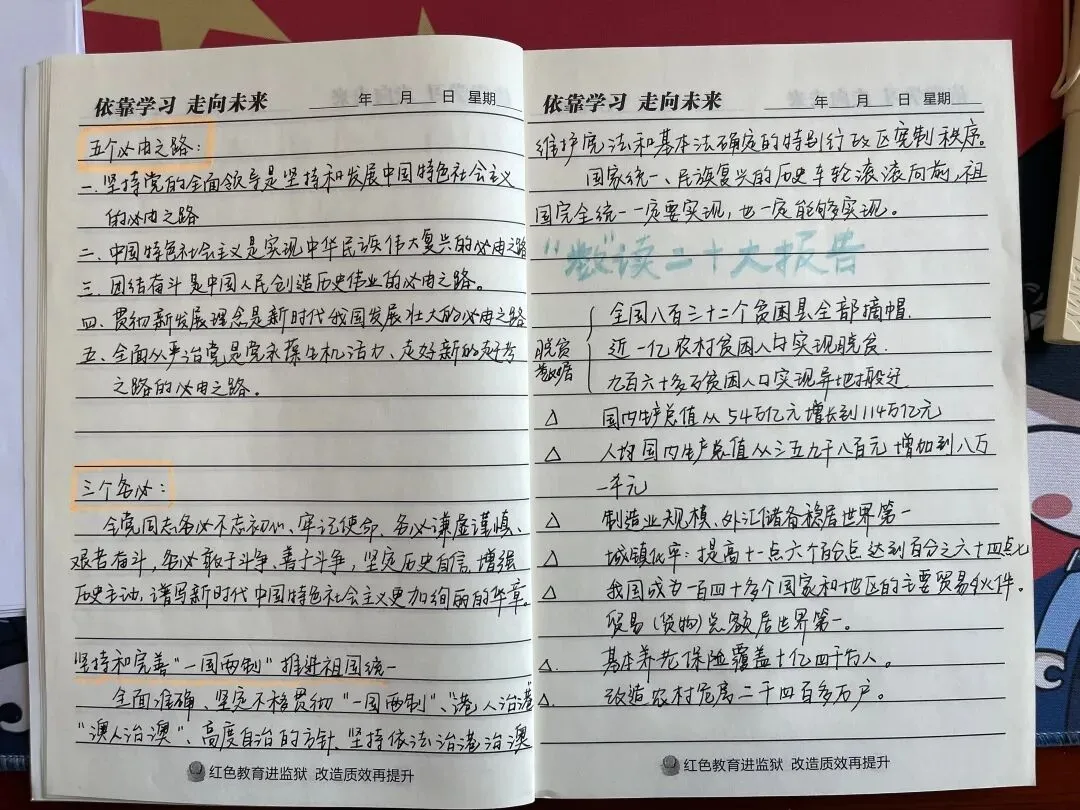 依靠学习 走向未来 年 月 日 星期
五个必由之路：
一.坚持党的全面领导是坚持和发展中国特色社会主义
的必由之路
二.中国特色社会主义是实现中华民族伟大复兴的必由之路
三.团结奋斗是中国人民创造历史伟业的必由之路。
四.贯彻新发展理念是新时代我国发展壮大的必由之路
五.全面从严治党是党永葆生机活力、走好新的赶考
之路的必由之路。
三个务必：
全党同志务必不忘初心、牢记使命、务必谦虚谨慎、
艰苦奋斗，务必敢于斗争、善于斗争，坚定历史自信，增强
历史主动，谱写新时代中国特色社会主义更加绚丽的华章。
坚持和完善“一国两制”推进祖国统一
全面准确、坚定不移贯彻“一国两制”、港人治港
“澳人治澳”、高度自治的方针、坚持依法治港治澳
红色教育进监狱 改造质效再提升
依靠学习 走向未来 年 月 日 星期
维护宪法和基本法确定的特别行政区宪制秩序。
国家统一、民族复兴的历史车轮滚滚向前，祖
国完全统一一定要实现，也一定能够实现。
“数”读二十大报告
全国八百三十二个贫困县全部摘帽.
脱贫数据
近一亿农村贫困人口实现脱贫.
九百六十多万贫困人口实现异地搬迁
△ 国内生产总值从54万亿元增长到114万亿元
△ 人均国内生产总值从三五九千八百元增加到八万
一千元
△ 制造业规模、外汇储备稳居世界第一
△ 城镇化率：提高十一点六个百分点达到百分之六十四点七
△ 我国成为一百四十多个国家和地区的主要贸易伙伴.
贸易(货物)总额居世界第一。
△. 基本养老保险覆盖十亿四千万人。
△. 改造农村危房二千四百多万户。
红色教育进监狱 改造质效再提升